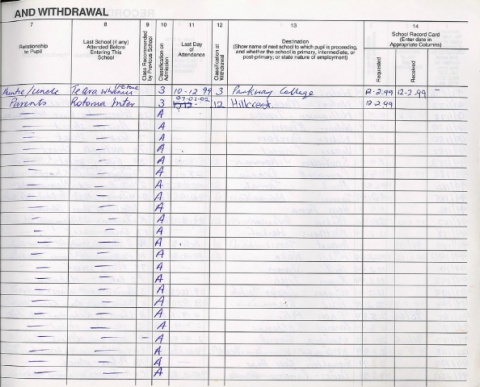 AND WITHDRAWAL
7 8 9 10 11 12 13 14
Relationship to Pupil
Last School (if any) Attended Before Entering This School
Class Recommended by Previous School
Classification on Admission
Last Day of Attendance
Classification at Withdrawal
Destination (Show name of next school to which pupil is proceeding, and whether the school is primary, intermediate, or post-primary; or state nature of employment)
School Record Card (Enter date in Appropriate Columns)
Requested Received
Auntie/Uncle 3 10.12.99 3 Parkway College 12.2.99 12.2.99 —
Parents Rotorua Inter 3 07-01-02 12 Hillcrest 12 2 99
— — A
— — A
— — A
— — A
— — A
— — A
— — A
— — A
— — A
— — A
— — A
— — A
— — A
— — A
— — A
— — A
— — A
— — A
— — A
— — – A
— — A
— — A
— — A